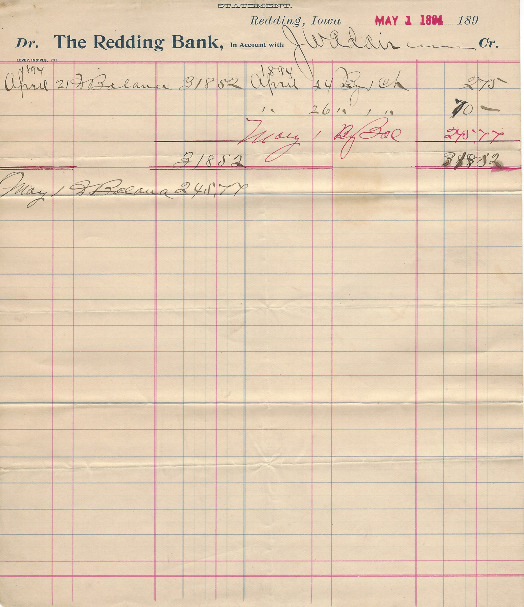 STATEMENT.
Redding, Iowa MAY 1 1894 189
Dr. The Redding Bank, In Account with J W Adair Cr.
1894 1894
April 21 To Balance 31852 April 24 By 1 Ch 275
" 26 " " " 70 —
May 1 By Bal 24577
31852 31852
May 1 To Balance 24577